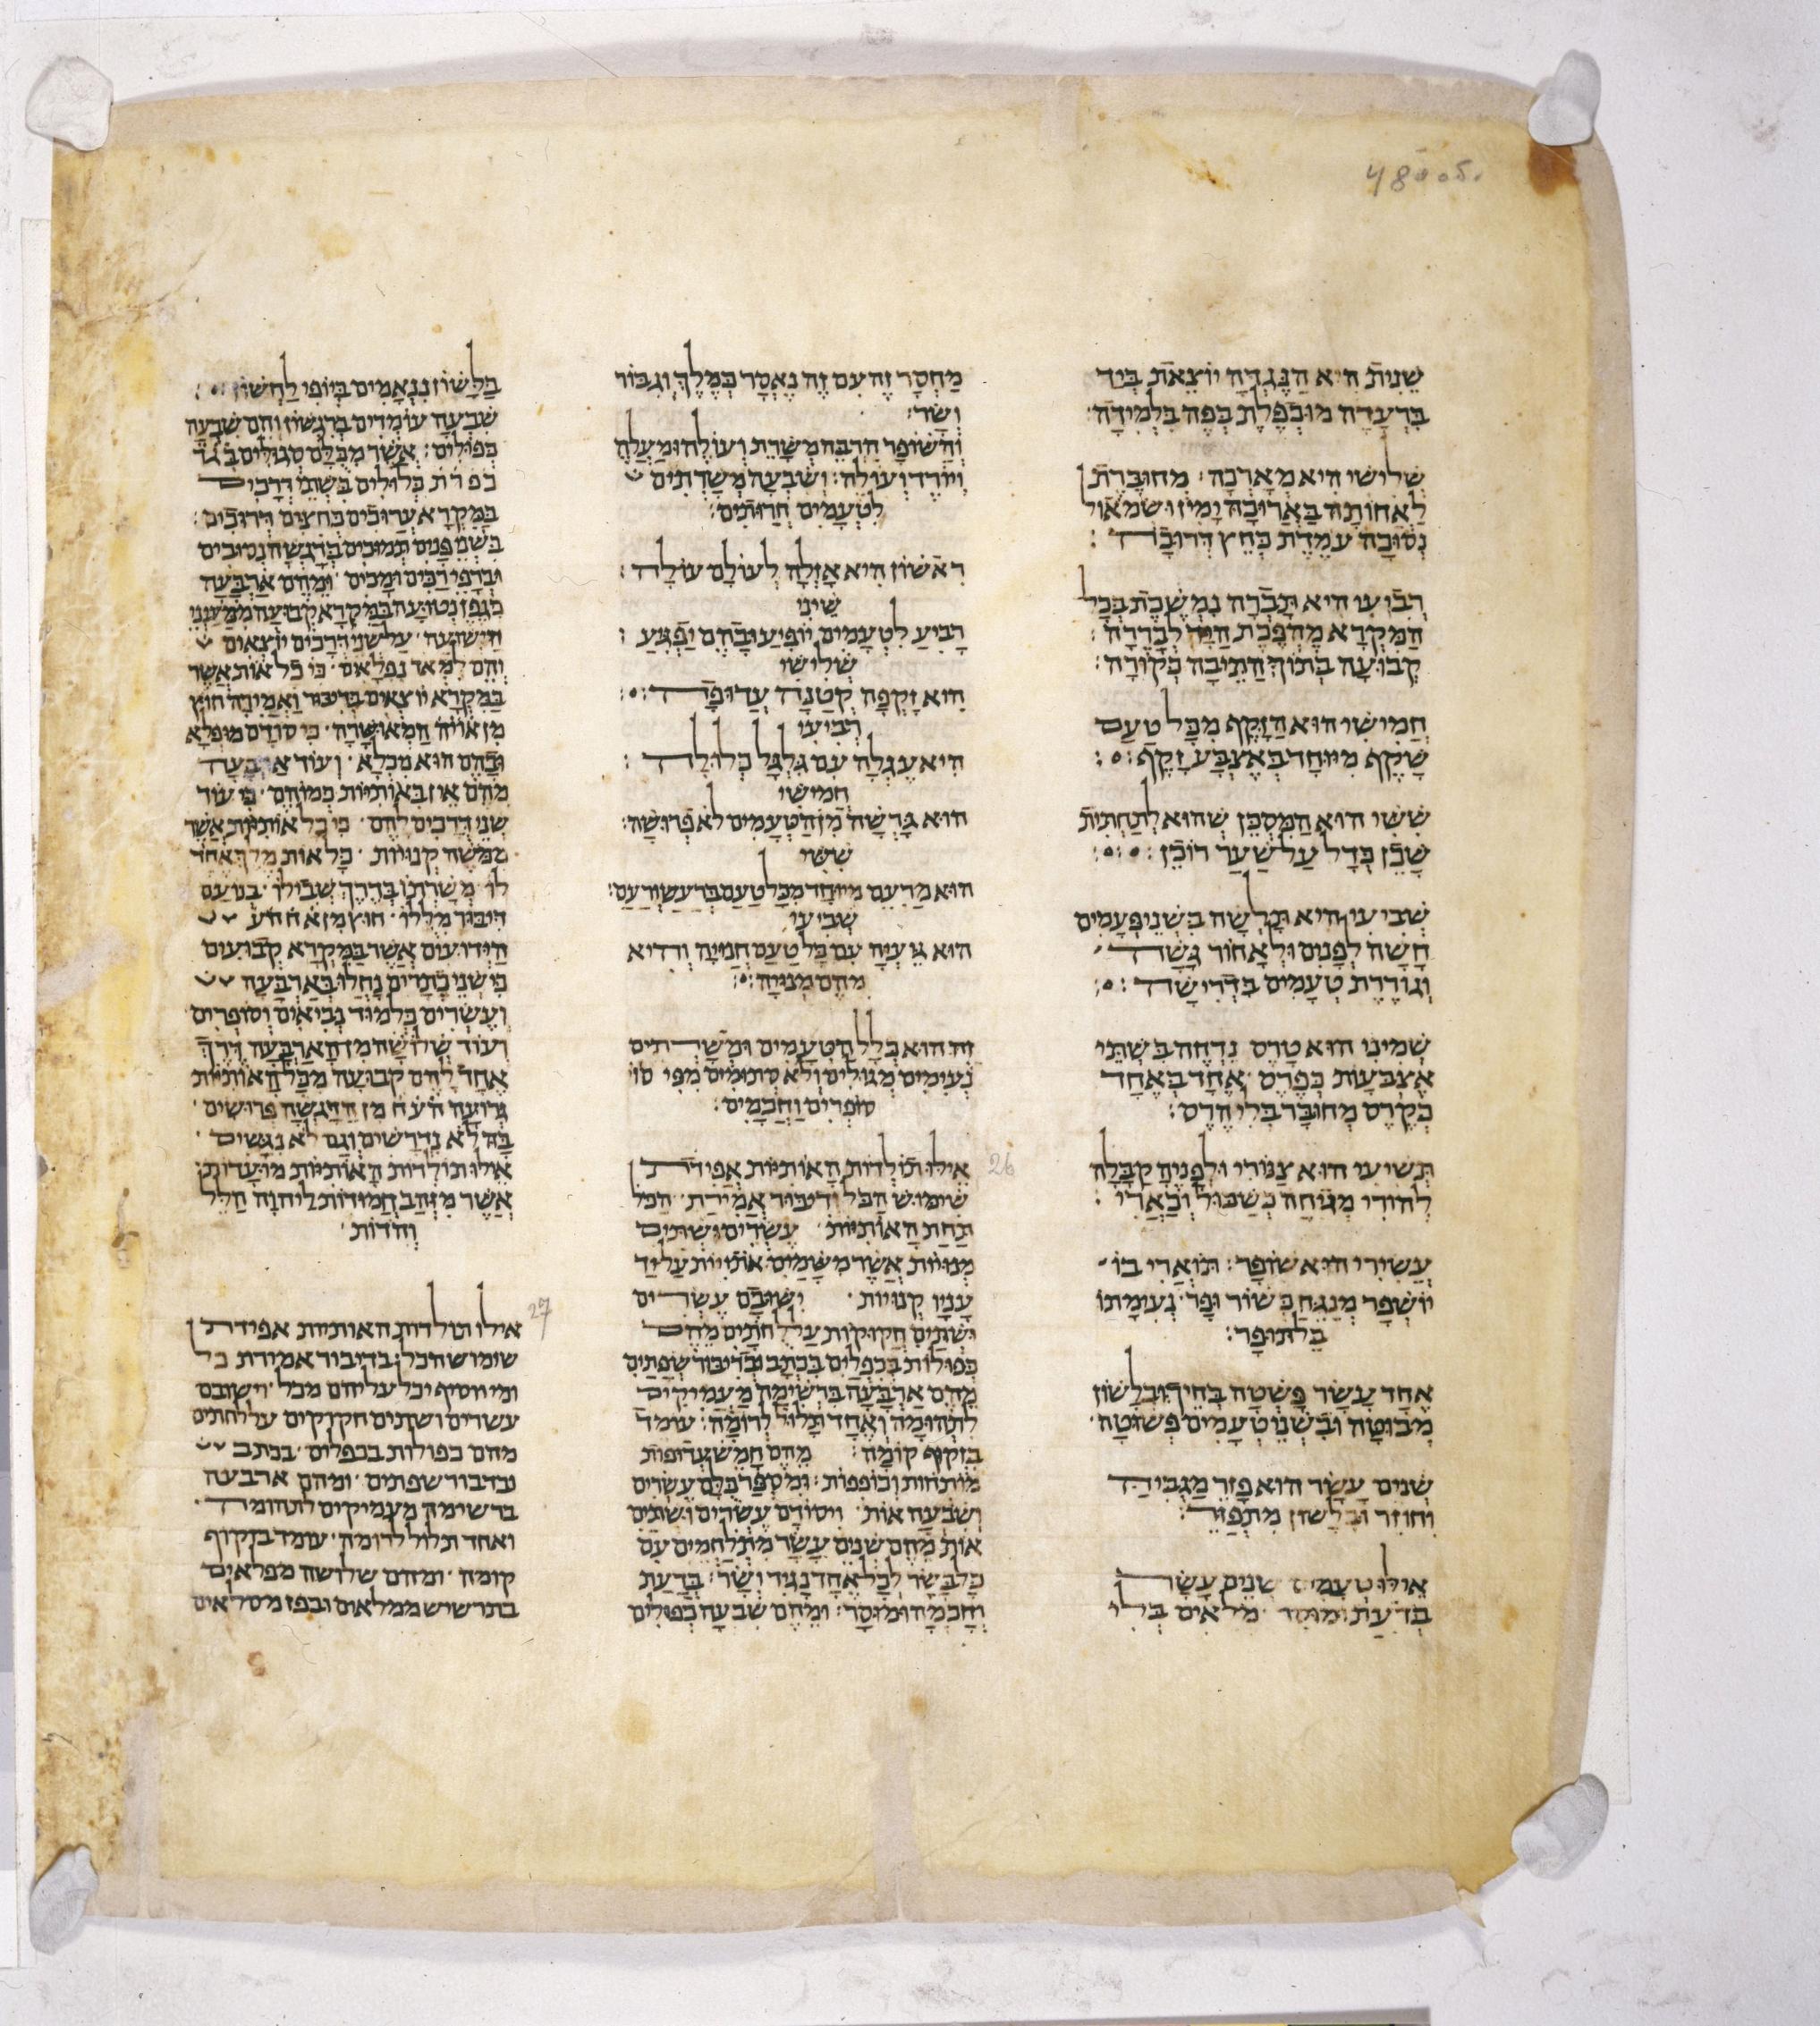 480 об.
שֵׁנִית הִיא הַנֶּגְדָּה יוֹצֵאת בְּיַד
בִּרְעָדָה מוּכְפֶּלֶת כְּפֶה בִּלְמִידָה
שְׁלִישִׁי הִיא מְאָרְכָה מחוּבֶּרֶת
לַאֲחוֹתָהּ בַּאֲרוּכָה יָמִין וּשמאול
נְסוּבָה עמֶדֶת כְּחֵץ דְּרוּכָה :
רְבִיעִי הִיא תַּבְרָה נִמְשֶׁכֶת בְּכָל
הַמִּקְרָא מְהֻפֶּכֶת לְבָרְרָהּ :
קְבוּעָה בְתוֹךְ הַתֵּיבָה כְּקוֹרָה :
חֲמִישִׁי הוּא הַזָּקֵף מִכָּל טַעַם
שָׁקֵף מְיוּחָד בְּאֶצְבַּע זָקֵף : ° :
שִׁשִּׁי הוּא הַמִּסְכֵּן שְׁהוּא לְתַחְתִּית
שָׁכֵן כְּדָל עַל שַׁעַר רוֹכֵן : ° : ° :
שְׁבִיעִי הִיא תַּלְשָׁה בִּשְׁנֵי פְּעָמִים
חָשָׁה לְפָנִים וּלְאָחוֹר גָּשָׁה
וְגוֹרֶרֶת טְעָמִים בִּדְרִישָׁה : ° :
שְׁמִינִי הוּא טָרֶס נִדְחֶה בִּשְׁתֵּי
אֶצְבָּעוֹת כְּפֶרֶס אֶחָד בְּאֶחָד
כְּקֶרֶס מְחוּבָּר בְּלִי הֶרֶס :
תְּשִׁיעִי הוּא צִנּוֹרִי וּלְפָנֶיהָ קַבָּלָה
לְהוֹרִי מְנֻיחָה כְּשַׁכּוּל וְכַאֲרִי
עֲשִׂירִי הוּא שׁוֹפָר : תּוֹאֲרִי בוֹ
יוֹשְׁפָר מְנַגֵּחַ כְּשׁוֹר וּפָר נְעִימָתוֹ
בַּל תּוּפָר :
אֶחָד עָשָׂר פַּשְׁטָה בְּחֵיךְ וּבְלָשׁוֹן
מְבוּטָה וּבִשְׁנֵי טְעָמִים פְּשׁוּטָה
שְׁנֵים עָשָׂר הוּא פָּזֵר מַגְבִּיהַּ
וְחוֹזֵר וּבְלָשׁוֹן מִתְפַּזֵּר :
אֵילּוּ טְעָמִים שְׁנֵים עָשָׂר
בְּדַעַת וּמוּסָר מְלֵאִים בְּלִי
מַחְסָר זֶה עִם זֶה נֶאֱסָר כְּמֶלֶךְ וְגִבּוֹר
וְשָׂר :
וְהַשּׁוֹפָר הַרְבֵּה מְשָׁרֵת וְעוֹלֶה וּמַעֲלֶה
וְיוֹרֵד וְעוֹלֶה : וְשִׁבְעָה מְשָׁרְתִים
לִטְעָמִים חֲרוּתִים :
רִאשׁוֹן הִיא אָזְלָה לְעוֹלָם עוֹלָה :
שֵׁינִי
רָבִיעַ לִטְעָמִים יוֹפִיעַ וּבָהֶם יַפְגִּיעַ :
שְׁלִישִׁי
הִיא זָקְפָה קְטַנָּה עֲדוּפָּה : ° :
רְבִיעִי
הִיא עֶגְלָה עִם גִּלְגָּל כְּלוּלָה :
חֲמִישִׁי
הוּא גָּרְשָׁה מִן הַטְּעָמִים לֹא פְרוּשָׁה :
שִׁשִּׁי
הוּא מַרְעֵם מְיוּחָד מִכָּל טַעַם בְּרַעַשׁ וְרַעַם :
שְׁבִיעִי
הוּא גַּעְיָה עִם כָּל טַעַם חֲנוּיָה וְהִיא
מֵהֶם מְנוּיָה : ° :
זֶה הוּא כְּלָל הַטְּעָמִים וּמְשָׁרְתִים
נְעִימִים מְגוּלִּים וְלֹא סְתוּמִּים מִפִּי סוֹ
סוֹפְרִים וַחֲכָמִים :
26
אֵילּוּ תּוֹלְדוֹת הָאוֹתִיּוֹת אֲפִידַת
שִׁימּוּשׁ הַכֹּל וְדִיבּוּר אֲמִירַת הַכֹּל
תַּחַת הָאוֹתִיּוֹת עֶשְׂרִים וּשְׁתַּיִם
מְנוּיוֹת אֲשֶׁר מִשָּׁמַיִם אוֹתִיּוֹת עַל יַד
עָנָיו קְנוּיוֹת יִשּׁוּבָם עֶשְׂרִים
וּשְׁתַּיִם חֲקוּקוֹת עַל לֻחֹתִים מֵהֶם
כְּפוּלוֹת בִּכְפָלִים בִּכְתָב וּבְדִיבּוּר שְׂפָתַיִם
מֵהֶם אַרְבָּעָה בִּרְשִׁימָה מַעֲמִיקִים
לִתְהוֹמָה וְאֶחָד תָּלוּל לְרוֹמָה : עוֹמֵד
בִּזְקוּף קוֹמָה : מֵהֶם חָמֵשׁ עֲדוּפוֹת
מוּתְחוֹת וְכוֹפְפוֹת : וּמִסְפַּר כֻּלָּם עֶשְׂרִים
וְשִׁבְעָה אוֹת וִיסוֹדָם עֶשְׂרִים וּשְׁתַּיִם
אוֹת מֵהֶם שְׁנֵים עָשָׂר מִתְלַחֲמִים עִם
כָּל בָּשָׂר לְכָל אֶחָד נָגִיד וְשָׂר : בְּדַעַת
וְחָכְמָה וּמוּסָר : וּמֵהֶם שִׁבְעָה כְפוּלִים
בַּלָּשׁוֹן נִנְאָמִים בְּיוֹפִי לַחְשׁוֹן
שִׁבְעָה עוֹמְדִים בְּרִגְשׁוֹן וְהֵם שִׁבְעָה
כְּפוּלִים : אֲשֶׁר מִכֻּלָּם סְגוּלִים בְּגַד
כפרֹת כְּלוּלִים בִּשְׁתֵּי דְּרָכִים
בַּמִּקְרָא עֲרוּכִים כְּחִצִּים דְּרוּכִים :
בִּשְׁנֵי פָּנִים תְּמוּכִים בְּדִגְשָׁה נְסוּכִים
וּבְרָפֵי רַכִּים וּמָכִים וּמֵהֶם אַרְבָּעָה
כְּגֶפֶן נְטוּעָה בַּמִּקְרָא קְבוּעָה מִמַּעַיְנֵי
הַיְשׁוּעָה עַל שְׁנֵי דְּרָכִים יוֹצְאִים
וְהֵם לִמְאֹד נִפְלָאִם כִּי כָּל אוֹת אֲשֶׁר
בַּמִּקְרָא יוֹצְאִים בְּדִיבּוּר וַאֲמִירָה חוּץ
מִן אוֹיה הַמְאוּשָּׁרָה כִּי סוֹדָם מוּפְלָא
וּבָהֶם הוּא מִכְלָא וְעוֹד אַרְבָּעָה
מֵהֶם אֵין בְּאוֹתִיּוֹת כְּמוֹהֶם כִּי עוֹד
שְׁנֵי דְּרָכִים לָהֶם כִּי כָל אוֹתִיּוֹת אֲשֶׁר
מִמֹּשֶׁה קְנוּיוֹת כָּל אוֹת מֶלֶךְ אֶחָד
לוֹ מְשָׁרְתוֹ בְּדֶרֶךְ שְׁבִילוֹ בְּטַעַם
דִּיבּוּר מִלּוּלוֹ חוּץ מִן אֹהֹחֹע
הַיְדוּעִים אֲשֶׁר בַּמִּקְרָא קְבוּעִים
כִּי שְׁנֵי כְתָרִים נָחֲלוּ בְּאַרְבָּעָה
וְעֶשְׂרִים בְּלִמּוּד נְבִיאִים וְסוֹפְרִים
וְעוֹד שְׁלוֹשָׁה מִן הָאַרְבָּעָה דֶּרֶךְ
אֶחָד לָהֶם קְבוּעָה מִכָּל הָאוֹתִיּוֹת
גְּרוּעָה הֹעֹח מִן הַדִּגְשָׁה פְּרוּשִׁים
בָּהּ לֹא נִדְרָשִׁים וְגַם לֹא נִגָּשִׁים
אֵילּוּ תּוֹלְדוֹת הָאוֹתִיּוֹת מוּעָדוֹת
אֲשֶׁר מִזָּהָב חֲמוּדוֹת
וְחִדוֹת
27
אילו תולדות האותיות אפידת
שימוש הכל בדיבור אמירת כל
ומי יוסיף יכל עליהם מכל וישובם
עשרים ושתים חקוקים על לחתים
מהם כפולות בכפלים בכתב
ובדבור שפתים ומהם ארבעה
ברשימה מעמיקים לתהומה
ואחד תלול לרומה עומד בזקוף
קומה ומהם שלושה מפלאים
בתרשיש ממלאים ובפז מסלאים